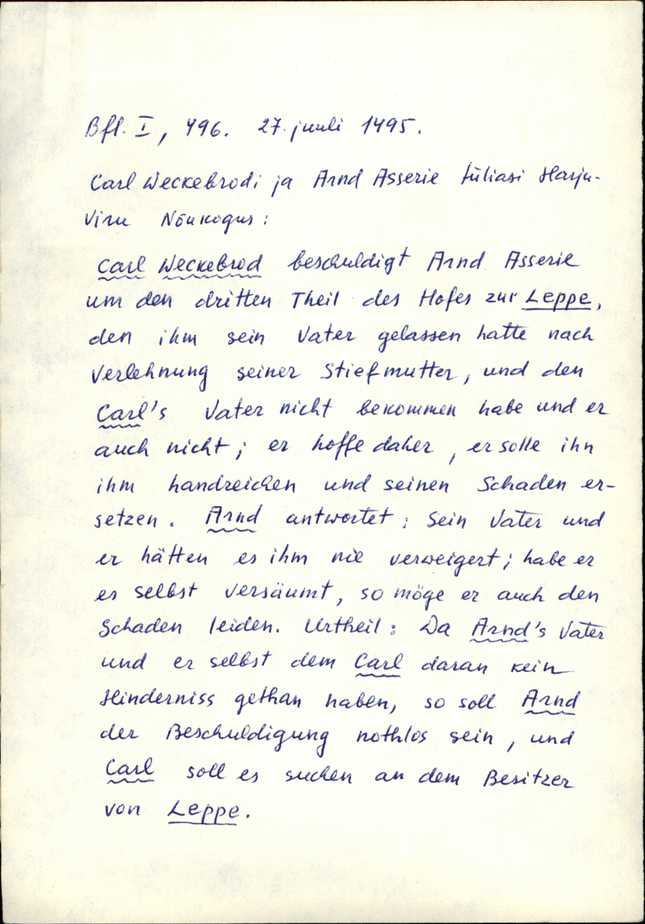 Bfl. I, 496. 27. juuli 1495.
Carl Weckebrodi ja Arnd Asserie tüliasi Harju-
Viru Nõukogus:
Carl Weckebrod beschuldigt Arnd Asserie
um den dritten Theil des Hofes zur Leppe,
den ihm sein Vater gelassen hatte nach
Verlehnung seiner Stiefmutter, und den
Carl's Vater nicht bekommen habe und er
auch nicht; er hoffe daher, er solle ihn
ihm handreichen und seinen Schaden er-
setzen. Arnd antwortet: Sein Vater und
er hätten es ihm nie verweigert; habe er
es selbst versäumt, so möge er auch den
Schaden leiden. Urtheil: Da Arnd's Vater
und er selbst dem Carl daran kein
Hinderniss gethan haben, so soll Arnd
der Beschuldigung nothlos sein, und
Carl soll es suchen an dem Besitzer
von Leppe.